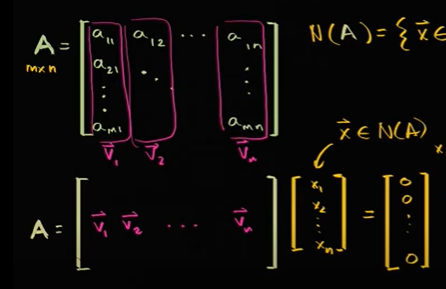 A = [a₁₁ a₁₂ ⋯ a₁ₙ
m×n
a₂₁ ⋱ ⋮
⋮
aₘ₁ aₘₙ]
v⃗₁ v⃗₂ v⃗ₙ
N(A) = { x⃗ ∈
x⃗ ∈ N(A)
x
A = [v⃗₁ v⃗₂ ⋯ v⃗ₙ] [x₁ x₂ ⋮ xₙ] = [0 0 ⋮ 0]